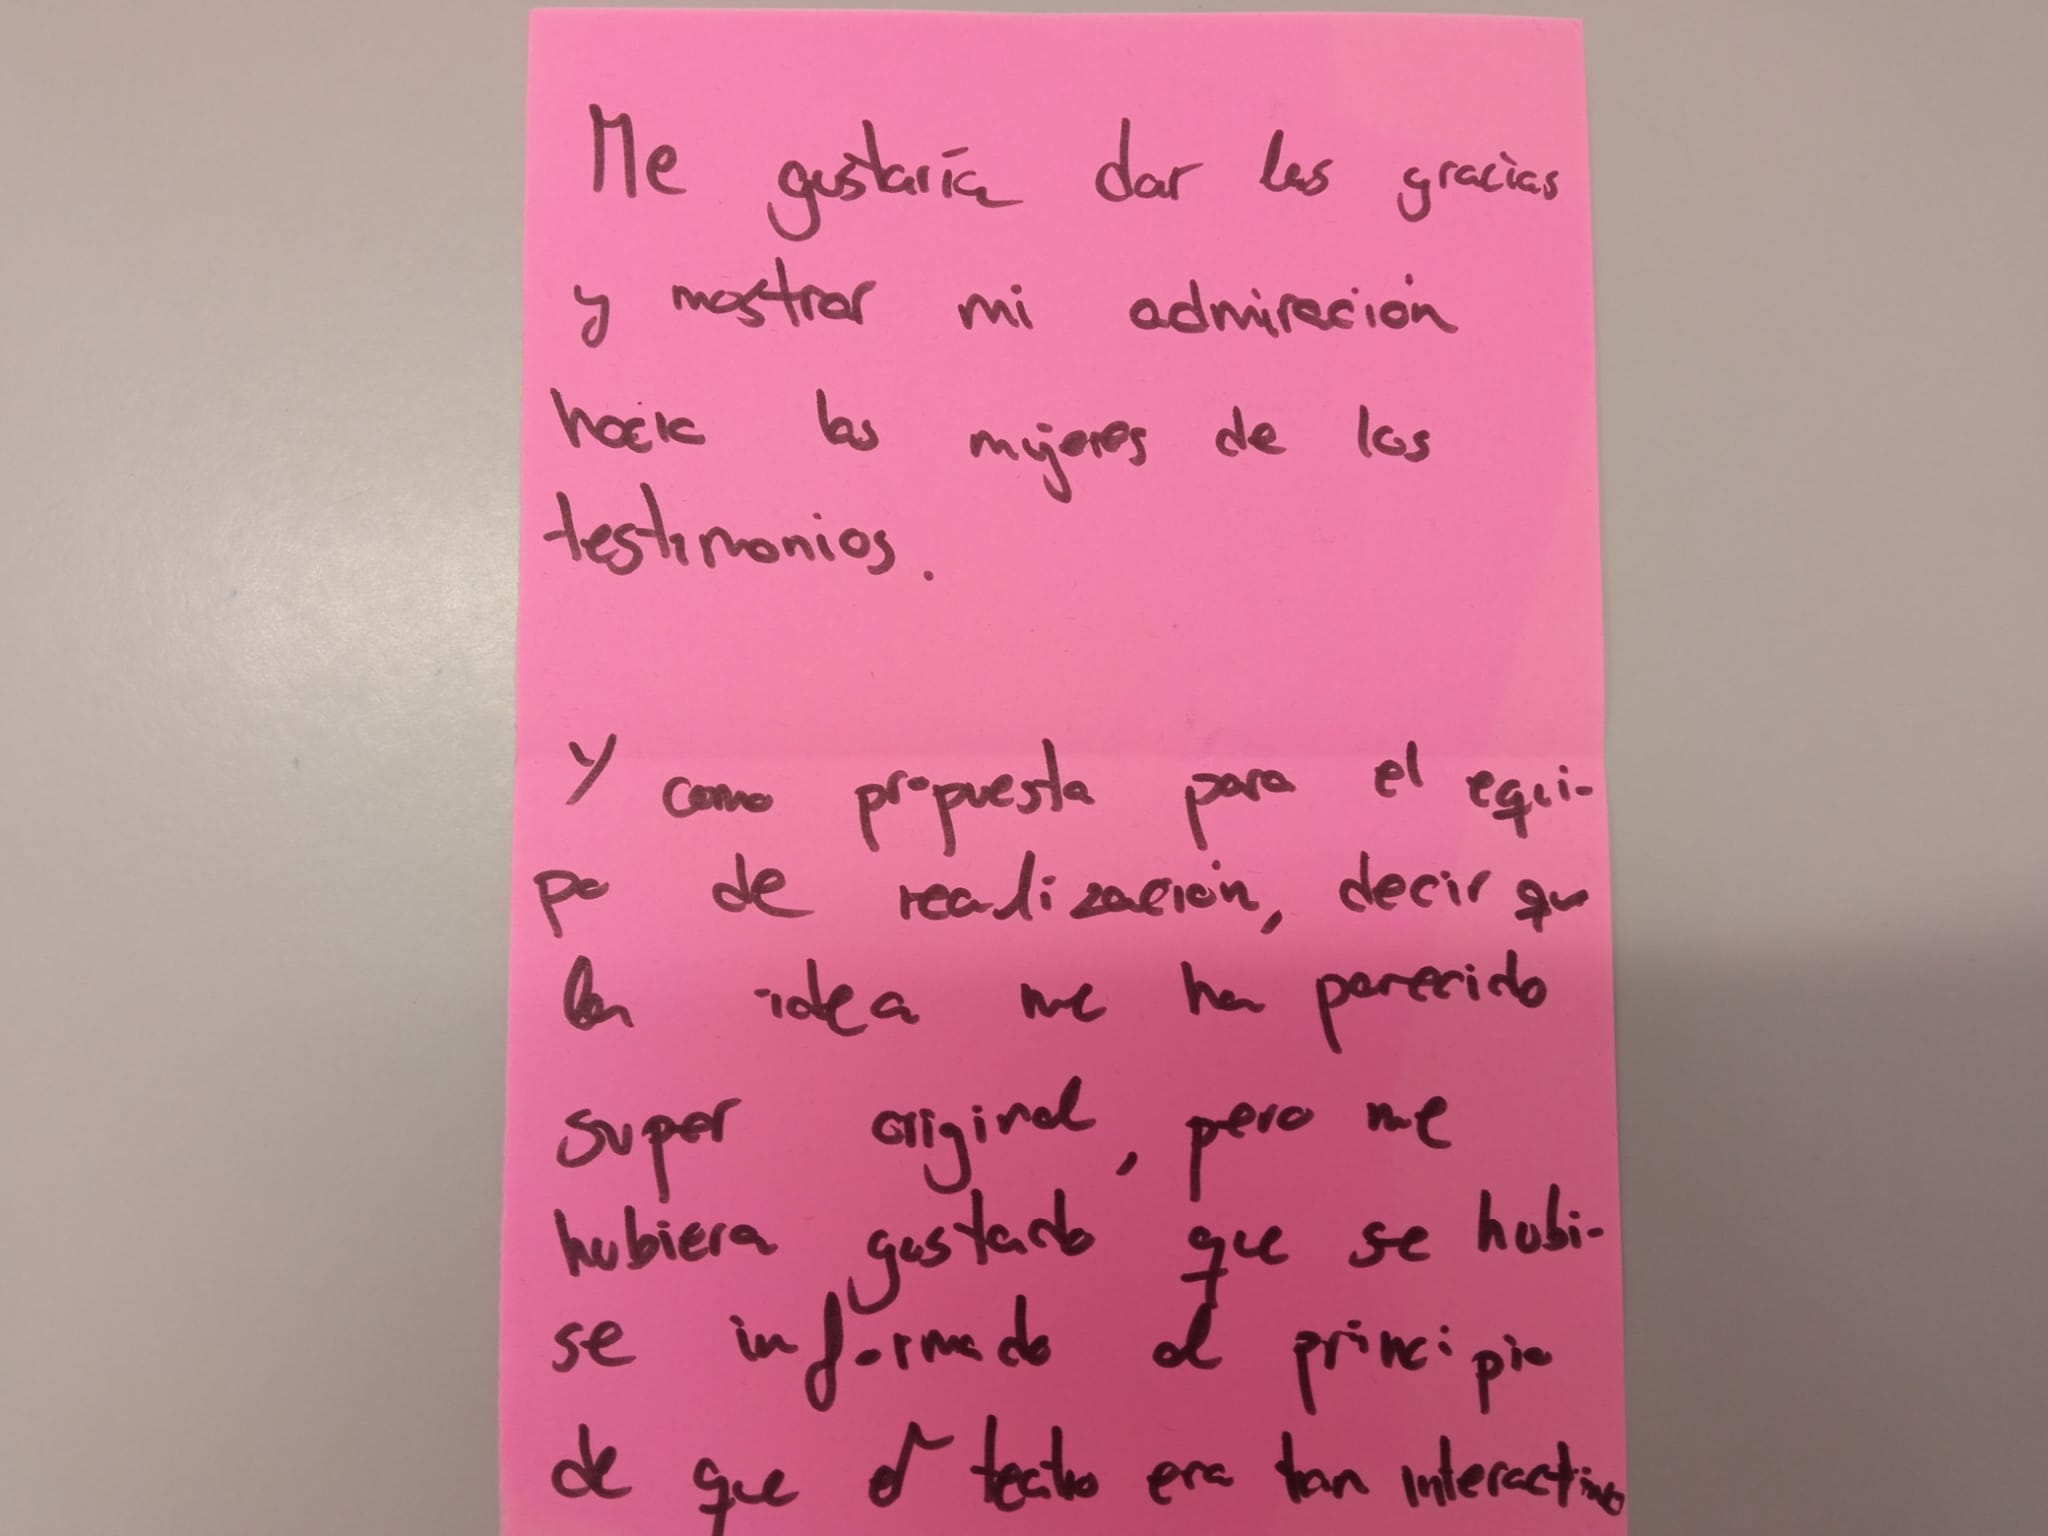 Me gustaría dar las gracias
y mostrar mi admiración
hacia las mujeres de los
testimonios.
Y como propuesta para el equi-
po de realización, decir que
la idea me ha parecido
super original, pero me
hubiera gustado que se hubi-
se informado al principio
de que el teatro era tan interactivo